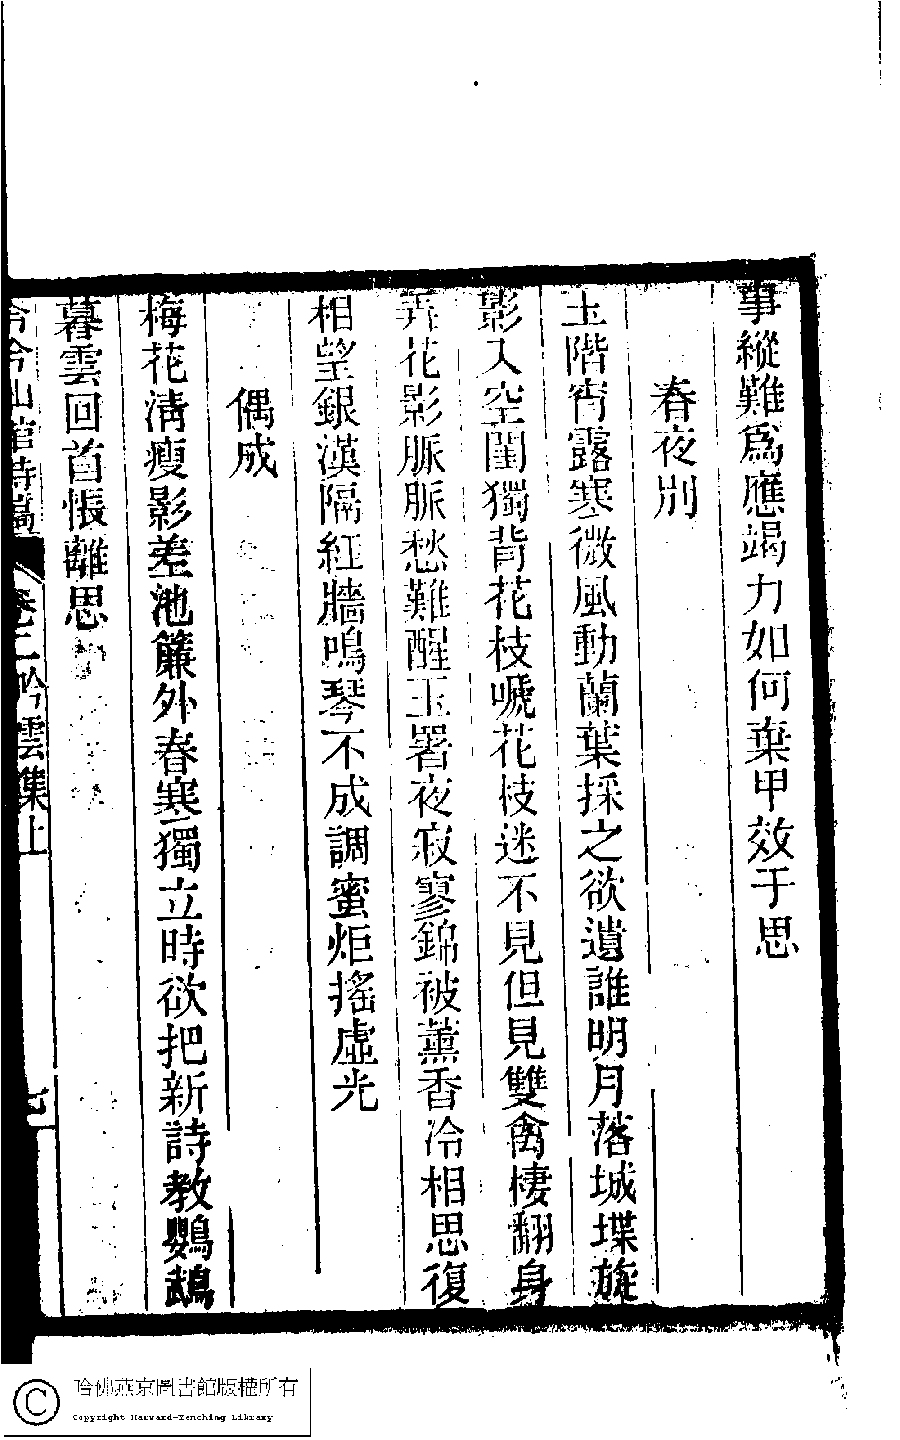 事縱難爲應竭力如何棄甲效于思
春夜別
玉階宵露寒微風動蘭葉採之欲遺誰明月落城堞旋
影入空閨獨背花枝嗁花枝迷不見但見雙禽棲翻身
弄花影脈脈愁難醒玉署夜寂寥錦被薰香冷相思復
相望銀漢隔紅牆鳴琴不成調蜜炬搖虛光
偶成
梅花淸瘦影差池簾外春寒獨立時欲把新詩教鸚鵡
暮雲回首悵離思
冷冷山館詩藳 卷二吟雲集上 七
哈佛燕京圖書館版權所有
Copyright Harvard-Yenching Library